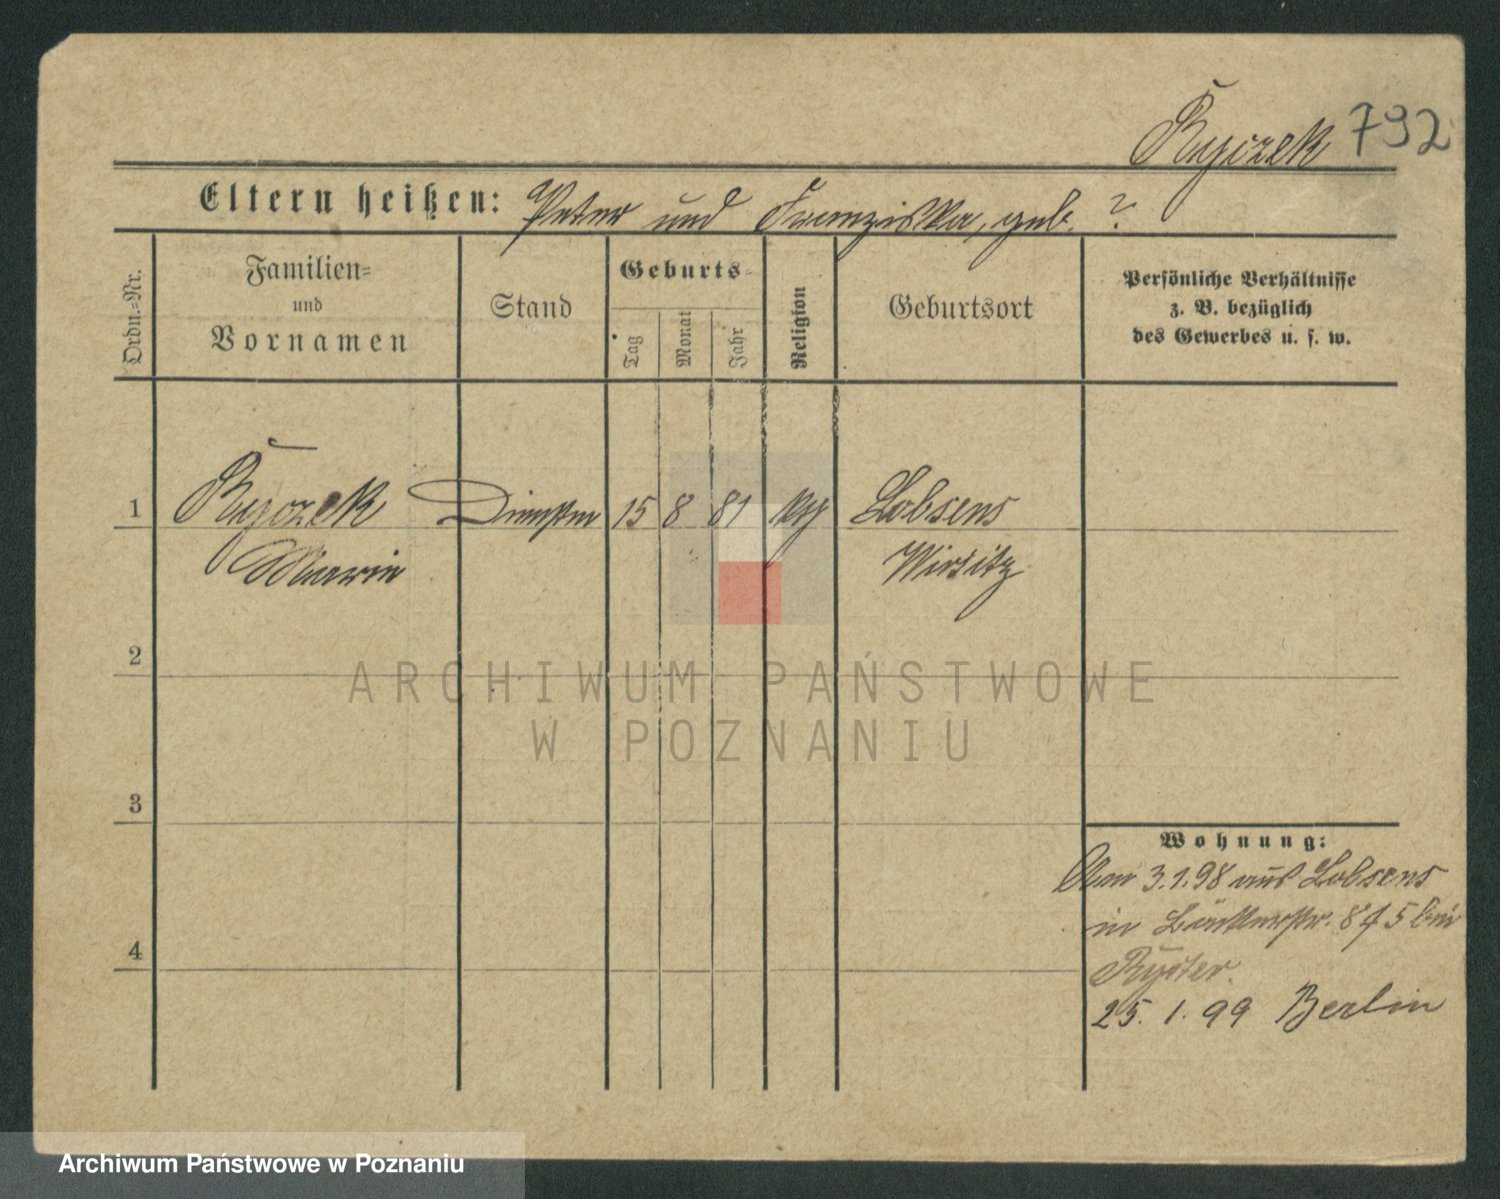 Ryczek 792
Eltern heißen: Peter und Franziska, geb. ?
Ordn.=Nr.
Familien=
und
Vornamen
Stand
Geburts=
Tag
Monat
Jahr
Religion
Geburtsort
Persönliche Verhältnisse
z. B. bezüglich
des Gewerbes u. s. w.
1 Ryczek 15 8 81 Lobsens
Marie Wirsitz
2
3
4
Wohnung:
3.1.98 aus Lobsens
in
25. 1. 99 Berlin
ARCHIWUM PAŃSTWOWE
W POZNANIU
Archiwum Państwowe w Poznaniu